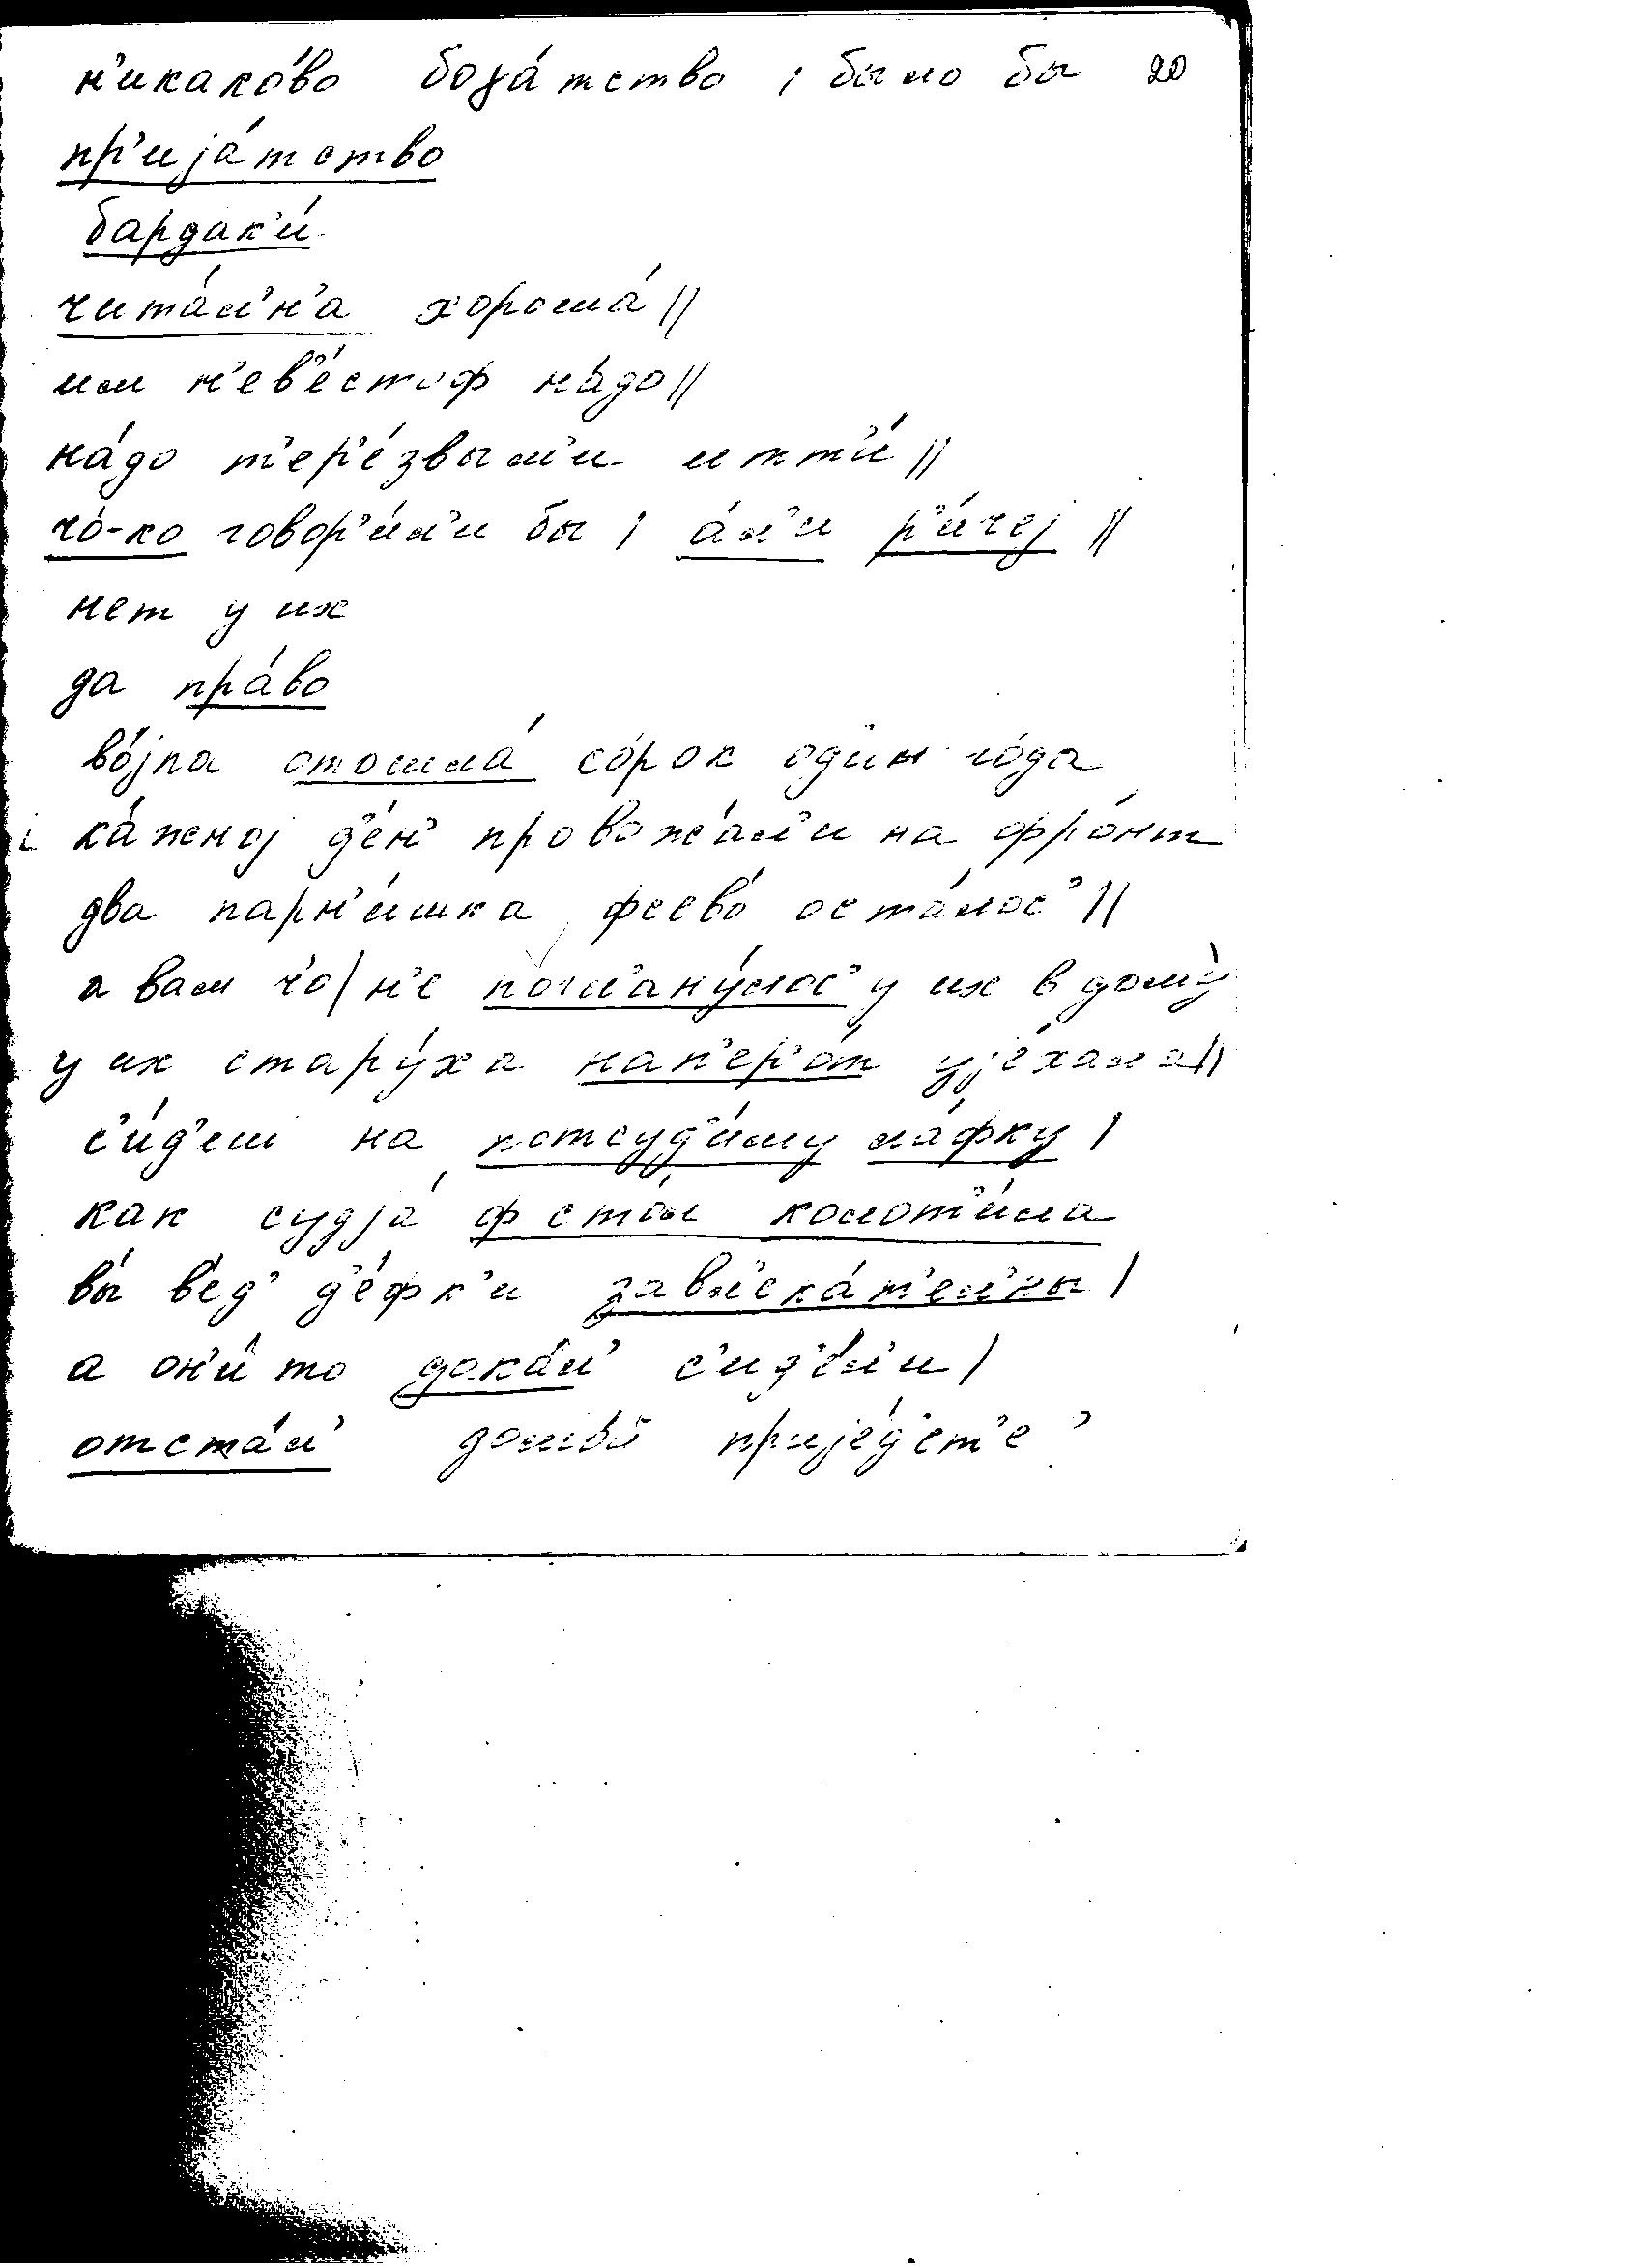 н'икако́во боγа́тство | было бы 20
пр'иjа́тство
бардак'и́
чита́л'н'а хороша́ ||
им н'ев'е́стоф на́до ||
на́до т'ер'е́звыми итт'и́ ||
чо́-ко говор'и́л'и бы | а́л'и р'и́чеj ||
нет у их
да пра́во
во́jна отошла́ со́рок од'ин го́да
ка́жноj д'е́н' провожа́л'и на фро́нт
два парн'и́шка фсево́ оста́лос' ||
а вам чо | н'е погл'ану́лос' у их в дому́
у их стару́ха нап'ер'о́т уjе́хала ||
с'и́д'еш на потсуд'и́му ла́фку |
как судjа́ ф сто́л колот'и́ла
вы́ в'ед' д'е́фк'и завл'ека́т'ел'ны |
а он'и́ то дока́л' с'ид'е́л'и |
отста́л' домо́й приjе́д'ет'е